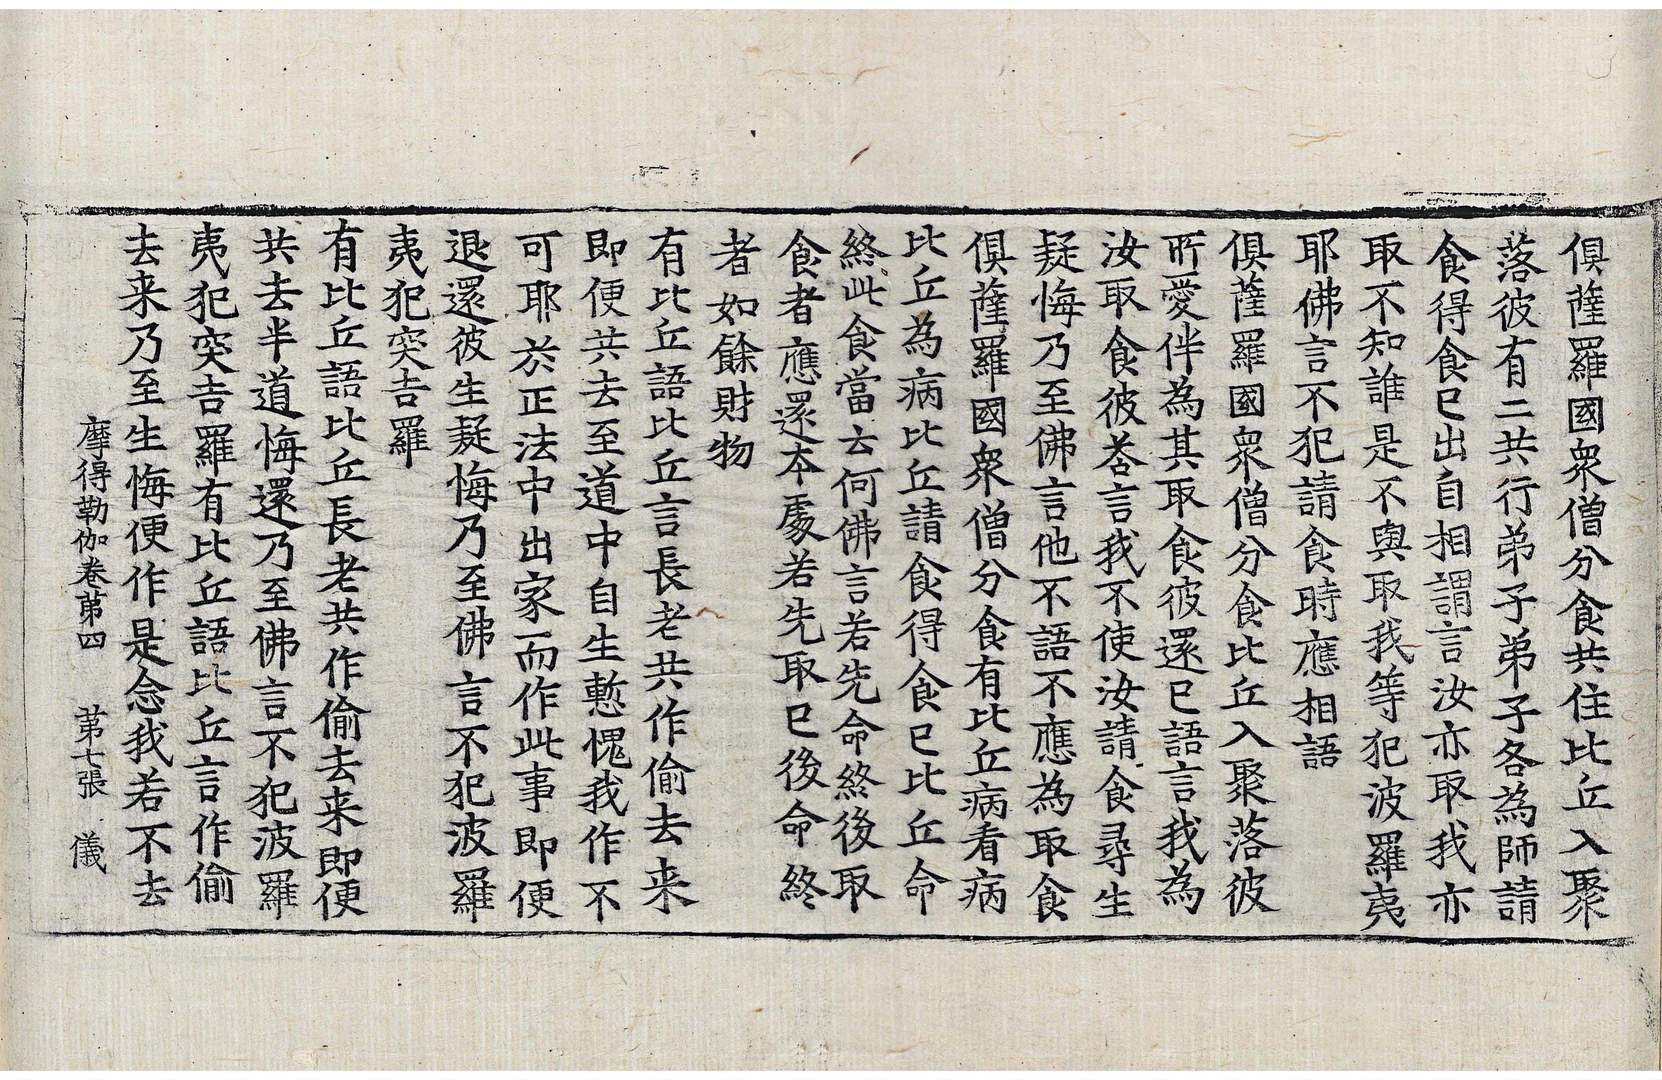 俱薩羅國衆僧分食共住比丘入聚
落彼有二共行弟子弟子各為師請
食得食已出自相謂言汝亦取我亦
取不知誰是不與取我等犯波羅夷
耶佛言不犯請食時應相語
俱薩羅國衆僧分食比丘入聚落彼
所愛伴為其取食彼還已語言我為
汝取食彼荅言我不使汝請食尋生
疑悔乃至佛言他不語不應為取食
俱薩羅國衆僧分食有比丘病看病
比丘為病比丘請食得食已比丘命
終此食當云何佛言若先命終後取
食者應還本處若先取已後命終
者如餘財物
有比丘語比丘言長老共作偷去来
即便共去至道中自生慙愧我作不
可耶於正法中出家而作此事即便
退還彼生疑悔乃至佛言不犯波羅
夷犯突吉羅
有比丘語比丘長老共作偷去来即便
共去半道悔還乃至佛言不犯波羅
夷犯突吉羅有比丘語比丘言作偷
去来乃至生悔便作是念我若不去
摩得勒伽卷第四 第七張 儀